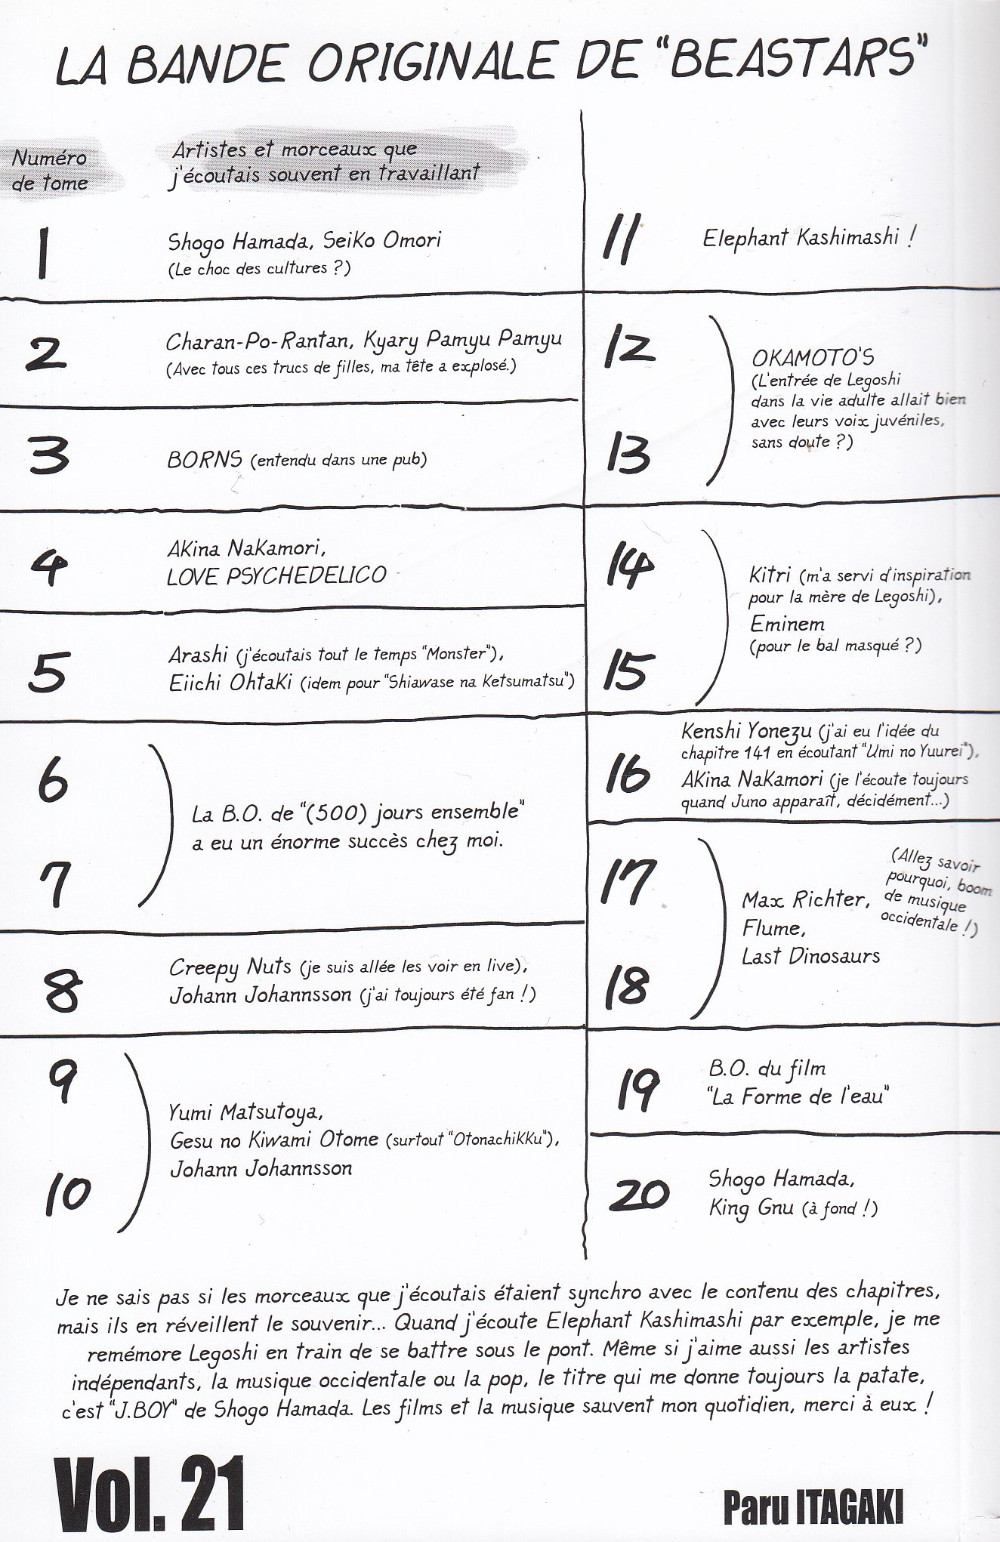 LA BANDE ORIGINALE DE "BEASTARS"
Numéro
de tome
Artistes et morceaux que
j'écoutais souvent en travaillant
1
Shogo Hamada, Seiko Omori
(Le choc des cultures ?)
2
Charan-Po-Rantan, Kyary Pamyu Pamyu
(Avec tous ces trucs de filles, ma tête a explosé.)
3
BORNS (entendu dans une pub)
4
Akina Nakamori,
LOVE PSYCHEDELICO
5
Arashi (j'écoutais tout le temps "Monster"),
Eiichi Ohtaki (idem pour "Shiawase na Ketsumatsu")
6
7
La B.O. de "(500) jours ensemble"
a eu un énorme succès chez moi.
8
Creepy Nuts (je suis allée les voir en live),
Johann Johannsson (j'ai toujours été fan !)
9
10
Yumi Matsutoya,
Gesu no Kiwami Otome (surtout "Otonachikku"),
Johann Johannsson
11
Elephant Kashimashi !
12
13
OKAMOTO'S
(L'entrée de Legoshi
dans la vie adulte allait bien
avec leurs voix juvéniles,
sans doute ?)
14
15
Kitri (m'a servi d'inspiration
pour la mère de Legoshi),
Eminem
(pour le bal masqué ?)
16
Kenshi Yonezu (j'ai eu l'idée du
chapitre 141 en écoutant "Umi no Yuurei"),
Akina Nakamori (je l'écoute toujours
quand Juno apparaît, décidément...)
17
18
Max Richter,
Flume,
Last Dinosaurs
(Allez savoir
pourquoi, boom
de musique
occidentale !)
19
B.O. du film
"La Forme de l'eau"
20
Shogo Hamada,
King Gnu (à fond !)
Je ne sais pas si les morceaux que j'écoutais étaient synchro avec le contenu des chapitres,
mais ils en réveillent le souvenir... Quand j'écoute Elephant Kashimashi par exemple, je me
remémore Legoshi en train de se battre sous le pont. Même si j'aime aussi les artistes
indépendants, la musique occidentale ou la pop, le titre qui me donne toujours la patate,
c'est "J.BOY" de Shogo Hamada. Les films et la musique sauvent mon quotidien, merci à eux !
Vol. 21
Paru ITAGAKI